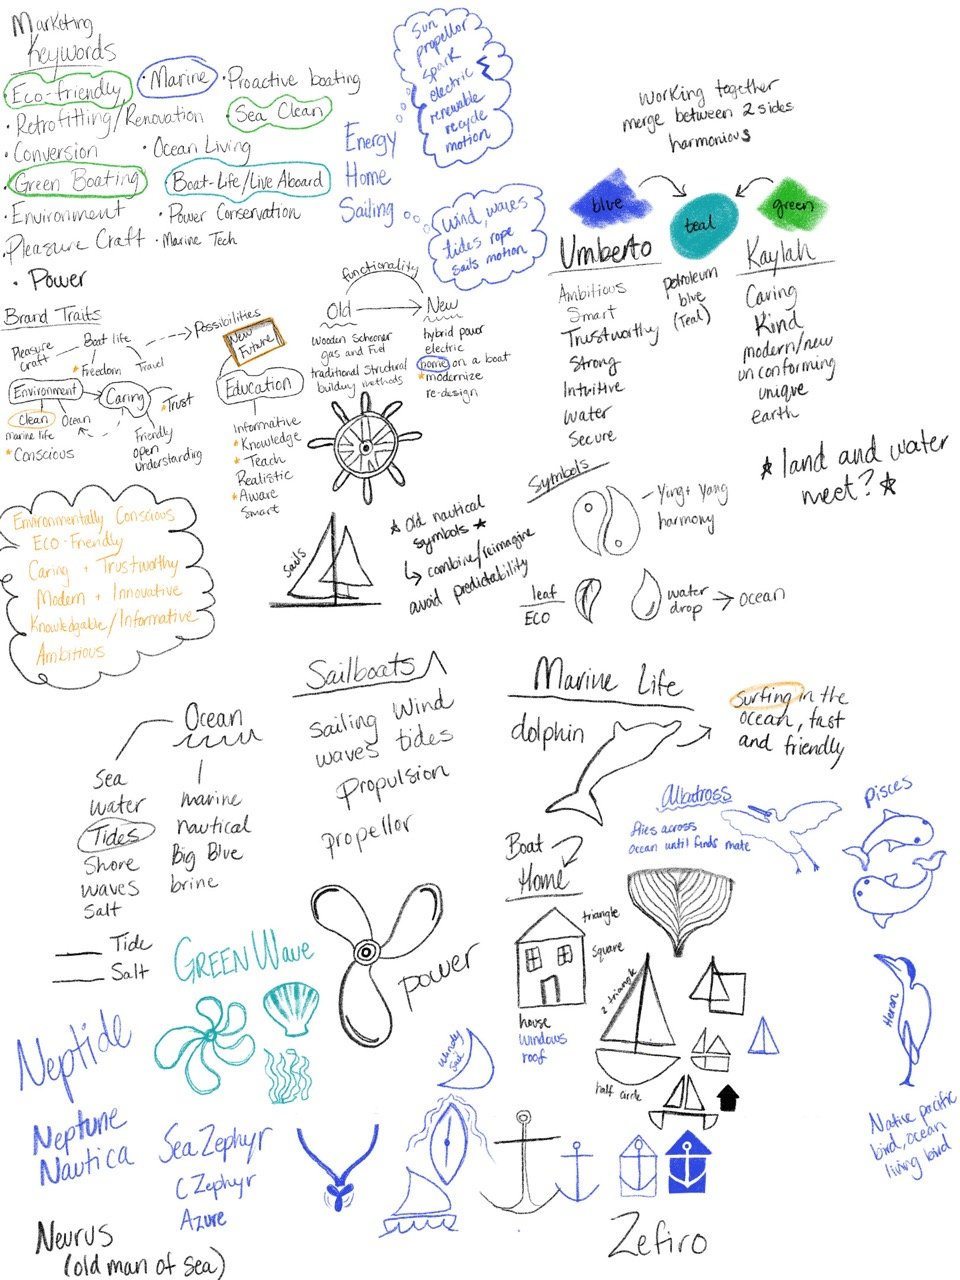 Marketing
Keywords
Eco-friendly
• Marine
• Proactive boating
• Retrofitting/Renovation
Sea Clean
• Conversion
• Ocean Living
Green Boating
Boat-Life/Live Aboard
• Environment
• Power Conservation
Pleasure Craft
• Marine Tech
• Power
Sun
propellor
spark
electric
renewable
recycle
motion
Energy
Home
Sailing
wind, waves
tides, rope
sails motion
working together
merge between 2 sides
harmonious
blue
teal
green
petroleum
blue
(Teal)
Umberto
Ambitious
Smart
Trustworthy
Strong
Intuitive
water
Secure
Kaylah
Caring
Kind
modern/new
unconforming
unique
earth
* land and water
meet? *
Brand Traits
Pleasure
Craft
Boat life
* Freedom
Travel
Possibilities
New
Future
Environment
Caring
* Trust
Clean
Ocean
marine life
* Conscious
Friendly
open
understanding
Education
Informative
* Knowledge
* Teach
Realistic
* Aware
Smart
functionality
Old
New
wooden Schooner
gas and Fuel
traditional structural
building methods
hybrid power
electric
home on a boat
* modernize
re-design
Environmentally Conscious
ECO-Friendly
Caring + Trustworthy
Modern + Innovative
Knowledgable/Informative
Ambitious
sails
* Old nautical
symbols *
combine/reimagine
avoid predictability
Symbols
Ying + Yang
harmony
leaf
ECO
water
drop
ocean
Ocean
Sea
water
Tides
Shore
waves
Salt
marine
nautical
Big Blue
brine
Tide
Salt
Sailboats
Sailing Wind
waves tides
Propulsion
propellor
power
Marine Life
dolphin
surfing in the
ocean, fast
and friendly
Albatross
flies across
ocean until finds mate
Pisces
Boat
Home
triangle
square
house
windows
roof
2 triangle
half circle
Heron
Native pacific
bird, ocean
living bird
GREEN Wave
Neptide
Neptune
Nautica
Sea Zephyr
C Zephyr
Azure
Windy
Sail
Neurus
(old man of sea)
Zefiro